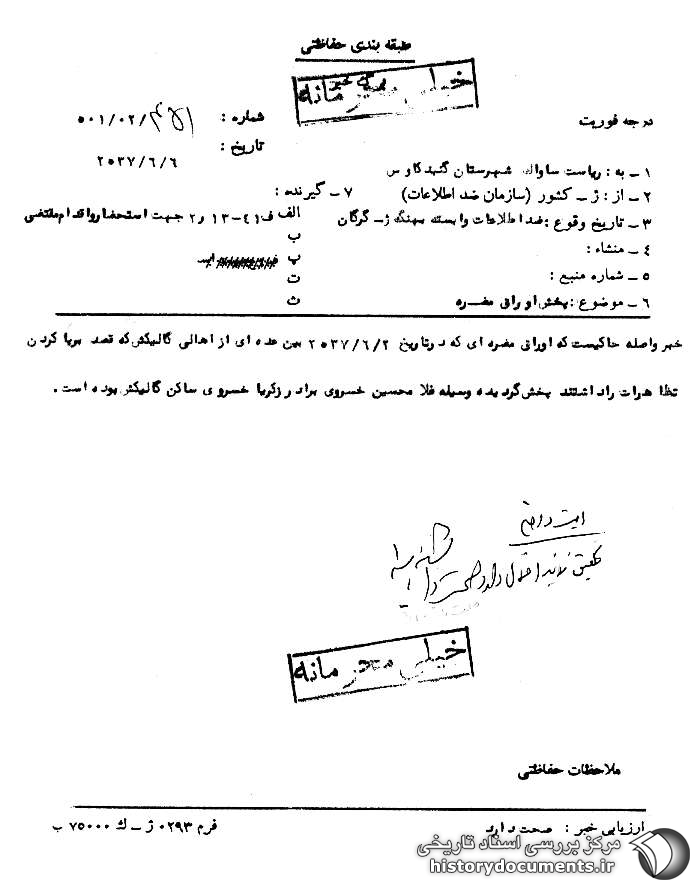 طبقه بندی حفاظتی
خیلی محرمانه
درجه فوریت
شماره : ۵۰۱/۰۲/
تاریخ : ۲۵۳۷/۶/۶
۱ ـ به : ریاست ساواک شهرستان گنبدکاوس
۲ ـ از : ژ ـ کشور (سازمان ضد اطلاعات)
۷ ـ گیرنده :
۳ ـ تاریخ وقوع : ضد اطلاعات وابسته بهنگ ژ ـ گرگان
الف ف ۴۱ ـ ۱۳ و ۲ جهت استحضار و اقدام مقتضی
۴ ـ منشاء :
ب
۵ ـ شماره منبع :
پ
ت
۶ ـ موضوع : پخش اوراق مضره
ث
خبر واصله حاکیست که اوراق مضره ای که در تاریخ ۲۵۳۷/۶/۲ بین عده ای از اهالی گالیکش که قصد برپا کردن
تظاهرات را داشتند پخش گردیده وسیله غلامحسین خسروی برادر زکریا خسروی ساکن گالیکش بوده است .
خیلی محرمانه
ملاحظات حفاظتی
ارزیابی خبر : صحت دارد
فرم ۰۲۹۳ ژ ـ ک ۷۵۰۰۰ ب
مرکز بررسی اسناد تاریخی
historydocuments.ir